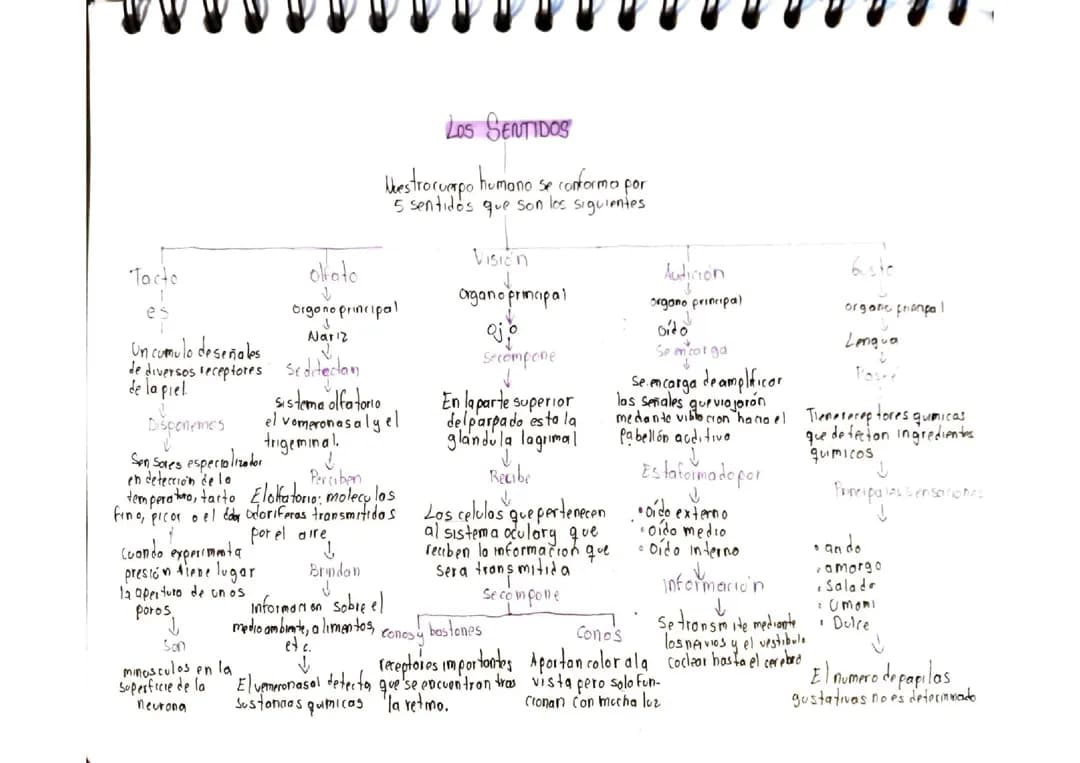 Los SENTIDOS
Nuestro cuerpo humano se conforma por
5 sentidos que son los siguientes
Tacto
es
Un cumulo de señales
de diversos receptores
de la piel
Disponemos
Sensores especializador
en detección de la
temperatura, tacto
fino, picor o el
Cuando experimenta
presión tiene lugar
la apertura de unos
poros
Son
minusculos en la
superficie de la
neurona
Olfato
Organo principal
Nariz
Se detectan
Sistema olfatorio
el vomeronasal y el
trigeminal.
Perciben
El olfatorio: moleculas
odoriferas transmitidas
por el aire
Brindan
Informacion sobre el
medio ambiente, alimentos,
etc.
El vemeronasal detecta
sustancias quimicas
Visión
Organo principal
Ojo
Se compone
En la parte superior
del parpado esta la
glándula lagrimal
Recibe
Las celulas que pertenecen
al sistema ocular y que
reciben la información que
sera transmitida
Se compone
conos y bastones
receptores importantes
que se encuentran tras
la retina.
Conos
Aportan color a la
vista pero solo fun-
cionan con mucha luz
Audición
organo principal
Oído
Se encarga
Se encarga de amplificar
las señales que viajarán
mediante vibracion hacia el
Pabellón auditivo
Esta formado por
• Oído externo
• Oído medio
• Oído interno
Información
Se transmite mediante
los nervios y el vestibulo
Coclear hasta el cerebro
Gusto
organo principal
Lengua
Posee
Tiene receptores quimicos
que detectan ingredientes
quimicos
Principales sensaciones
• amargo
• Salado
• Umami
• Dulce
El numero de papilas
gustativas no es determinado